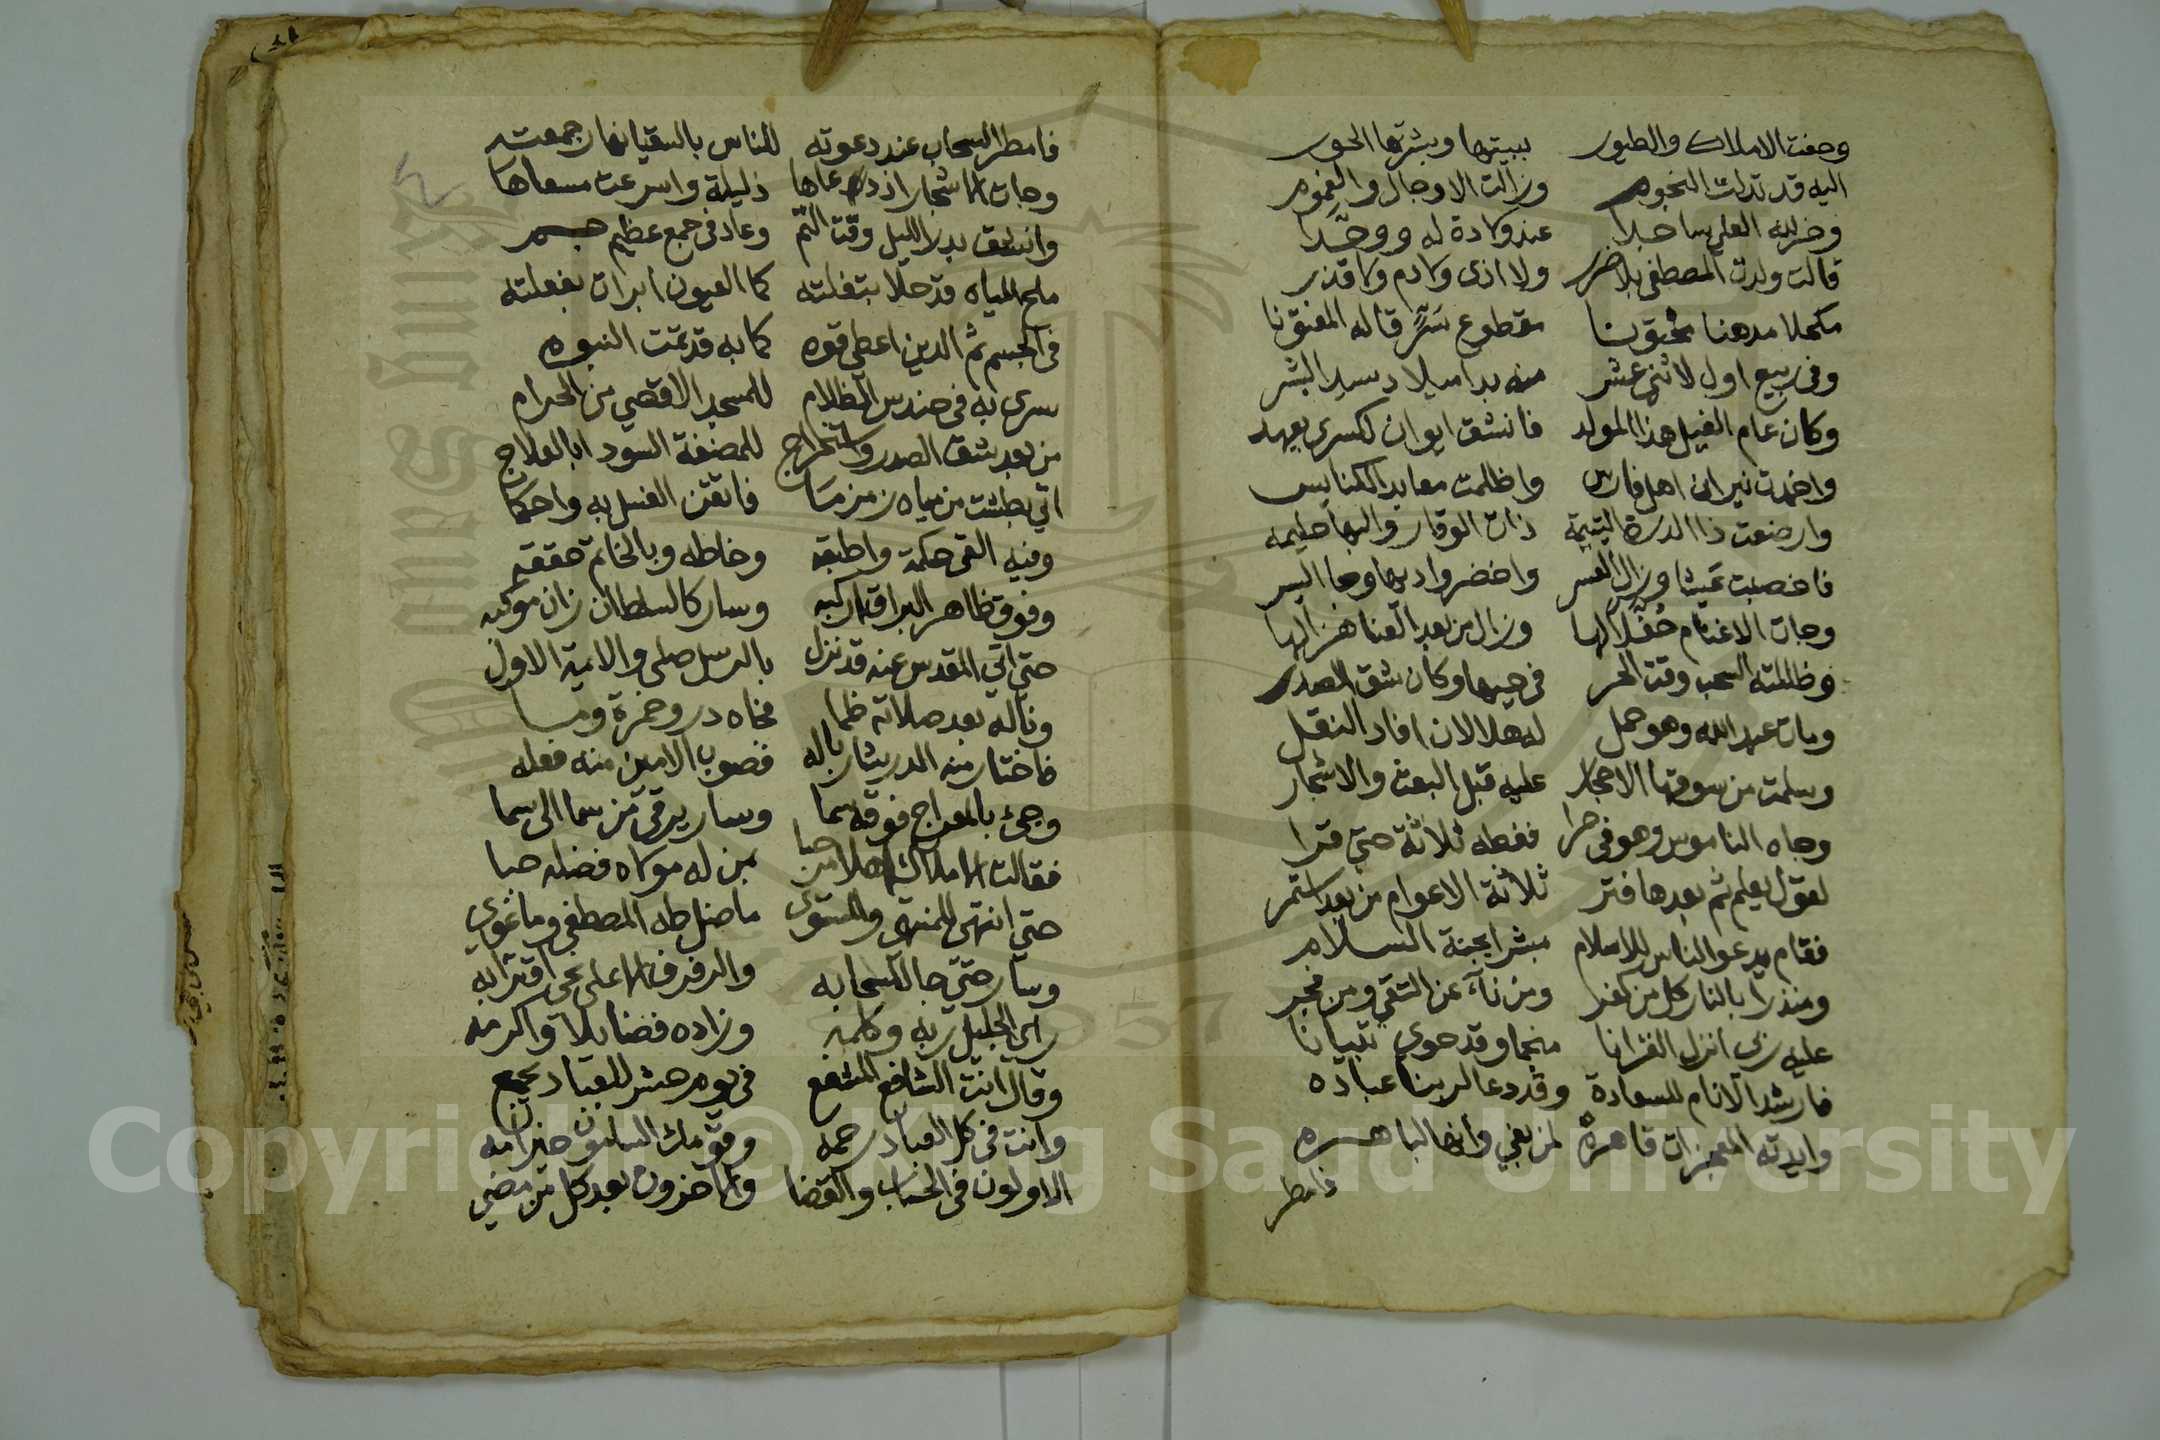 وحفت الاملاك والطيور ببيتها وبشرتها الحور
اليه قد تدلت النجوم وزالت الاوجال والغموم
وخر لله العلي ساجدا عند ولادة له ووحدا
قالت ولدت المصطفى بلا ضرر ولا اذى ولا دم ولا قذر
مكحلا مدهنا مختونا مقطوع سر قاله المفتونا
وفي ربيع اول لاثني عشر منه بدا ميلاد سيد البشر
وكان عام الفيل هذا المولد فانشق ايوان لكسرى يعهد
واخمدت نيران اهل فارس واظلمت معابد الكنايس
وارضعت ذا الدرة اليتيمة ذات الوقار والبها حليمه
فاخصبت عيشا وزال العسر واخضر واديها وجا اليسر
وجات الاغنام حفلا لها وزال من بعد العنا هزالها
وظللته السحب وقت الحر في حيها وكان شق الصدر
ومات عبد الله وهو حمل له هلا الان افاد النقل
وسلمت من سوقها الاحجار عليه قبل البعث والاشجار
وجاه الناموس وهو في حرا فغطه ثلاثة حتى قرا
لقول يعلم ثم بعدها فتر ثلاثة الاعوام من بعد استمر
فقام يدعو الناس للاسلام مبشرا بجنة السلام
ومنذرا بالنار كل من كفر ومن نآء عن التقي ومن فجر
عليه ربي انزل القرانا منجما وقد حوى تبيانا
فارشد الانام للسعادة وقد دعا لربنا عباده
وايدته المعجزات قاهرة لمن بغى وانها لباهره
فامطر
فامطر السحاب عند دعوته للناس بالسقيا نهار جمعته
وجات الاشجار اذ دعاها ذليلة واسرعت مسعاها
وانشق بدر الليل وقت التم وعاد في جمع عظيم جم
ملح المياه قد حلا بتفلته كما العيون ابرات بفعلته
في الجسم ثم الدين اعطي قوه كما به قد تمت النبوه
سرى به في حندس الظلام للمسجد الاقصي من الحرام
من بعد شق الصدر واستخراج للمضغة السود ابا لعلاج
اتي بطشت من مياه زمزما فاتقن الغسل به واحكما
وفيه القى حكمة واطبقه وخاطه وبالخاتم حققه
وفوق ظاهر البراق اركبه وسار كالسلطان زان موكبه
حتى اتي المقدس عنه قد نزل بالرسل صلى والايمة الاول
وناله بعد صلاته ظما فجاه در وخمرة وما
فاختار منه الدر يشار باله فصوب الامين منه فعله
وجئ بالمعراج فوقه سما وسار يرقى من سما الى سما
فقالت الاملاك اهلا مرحبا بمن له مولاه فضله حبا
حتى انتهى للمنتهى والمستوى ما ضل طه المصطفى وما غوى
وسار حتى جا لسحابه والرفرف الاعلى بحي اقترابه
راى الجليل ربه وكلمه وزاده فضايلا واكرمه
وقال انت الشافع المشفع في يوم حشر للعباد يجمع
وانت في كل العباد رحمه وقومك السابقون خير امه
الاولون في الحساب والقضا والاخرون بعد كل من مضى
Copyright © King Saud University
1957